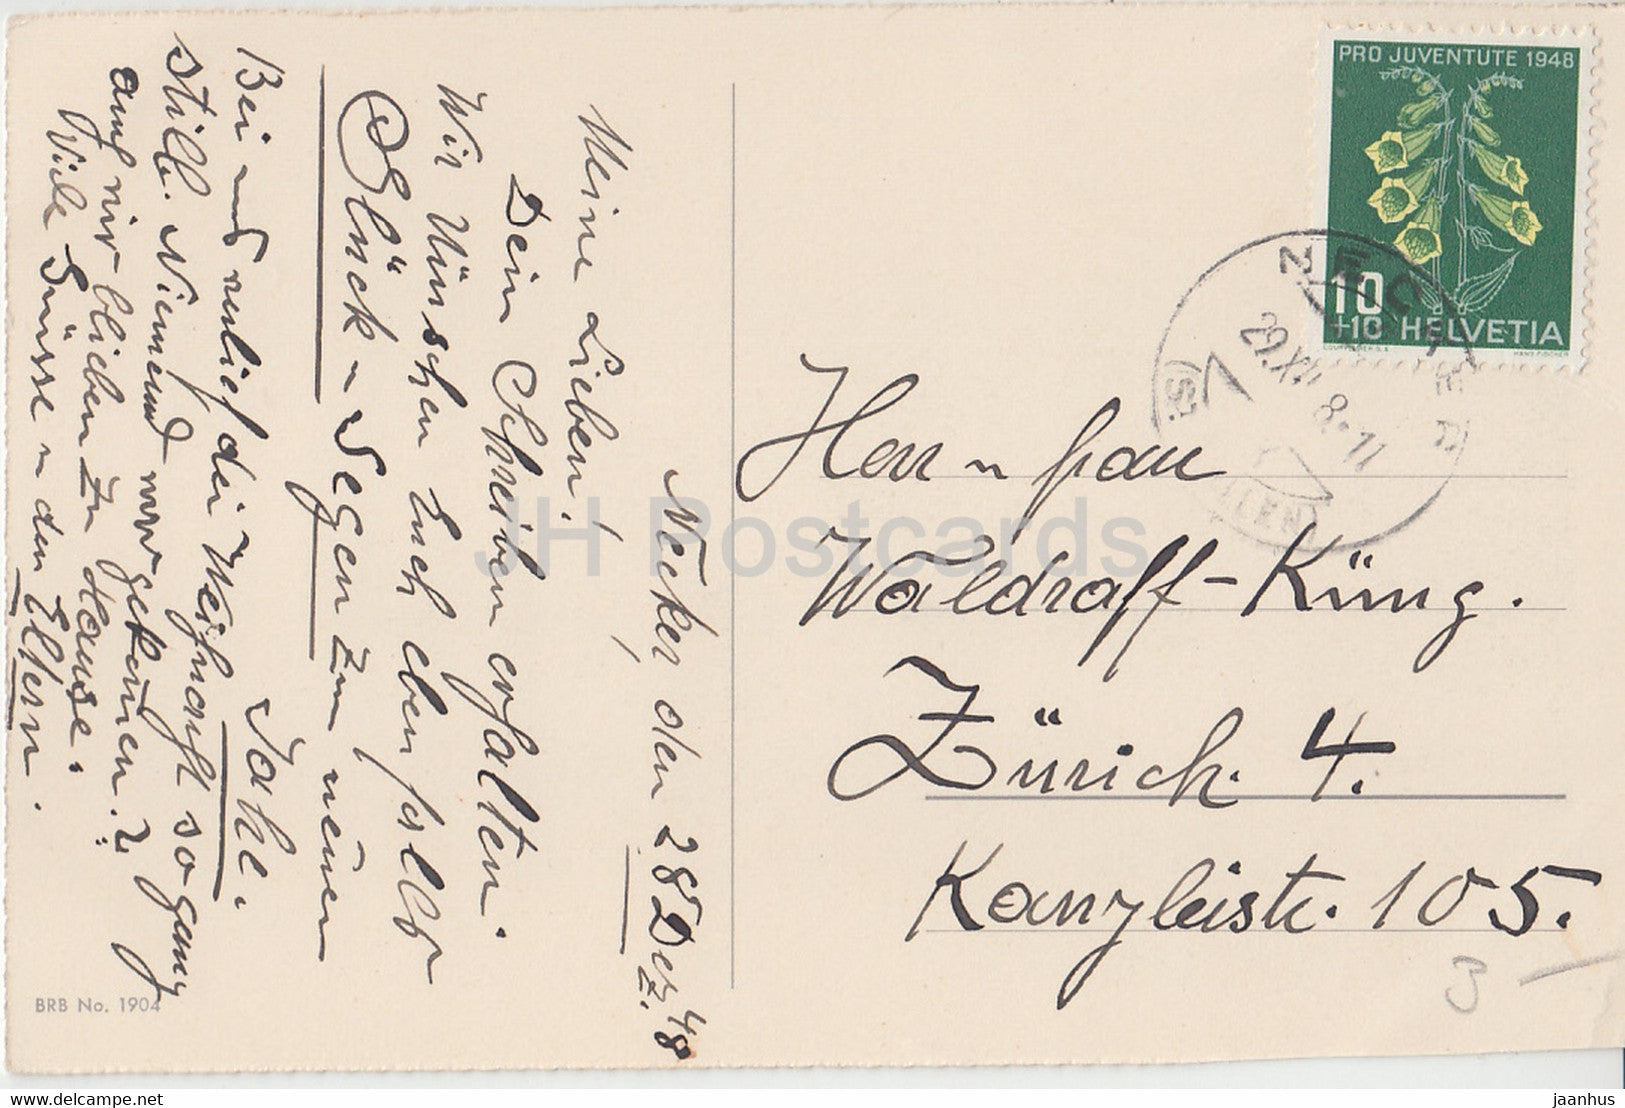 Necker, den 28 Dez. 48
Meine Lieben!
Dein Schreiben erhalten.
Wir Wünschen Euch ebenfalls
Glück u Segen zum neuen
Jahr.
Bei uns verlief die Weihnacht so ganz
still. Niemand
auch wir blieben zu Hause.
Viele Grüsse u den Eltern.
PRO JUVENTUTE 1948
10
+10 HELVETIA
COURVOISIER S.A.
HANS FISCHER
NECKER
29.XII 8-11
(ST. GALLEN)
Herr u Frau
Waldraff-Küng.
Zürich. 4.
Kanzleistr. 105.
3 –
BRB No. 1904
JH Postcards
www.delcampe.net
jaanhus